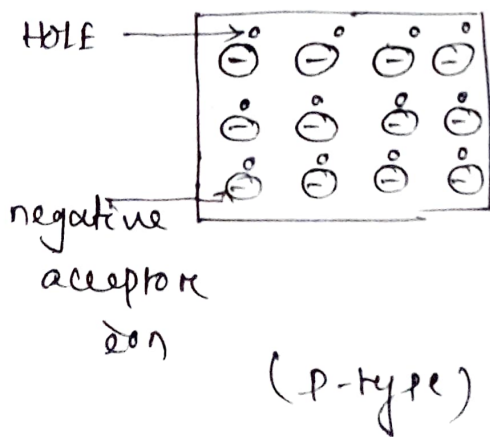 HOLE
negative
acceptor
ion
(P-type)